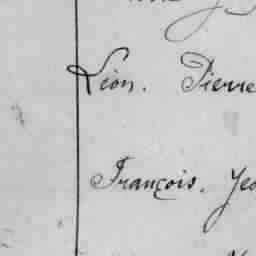 Léon. Pierre
François. Je